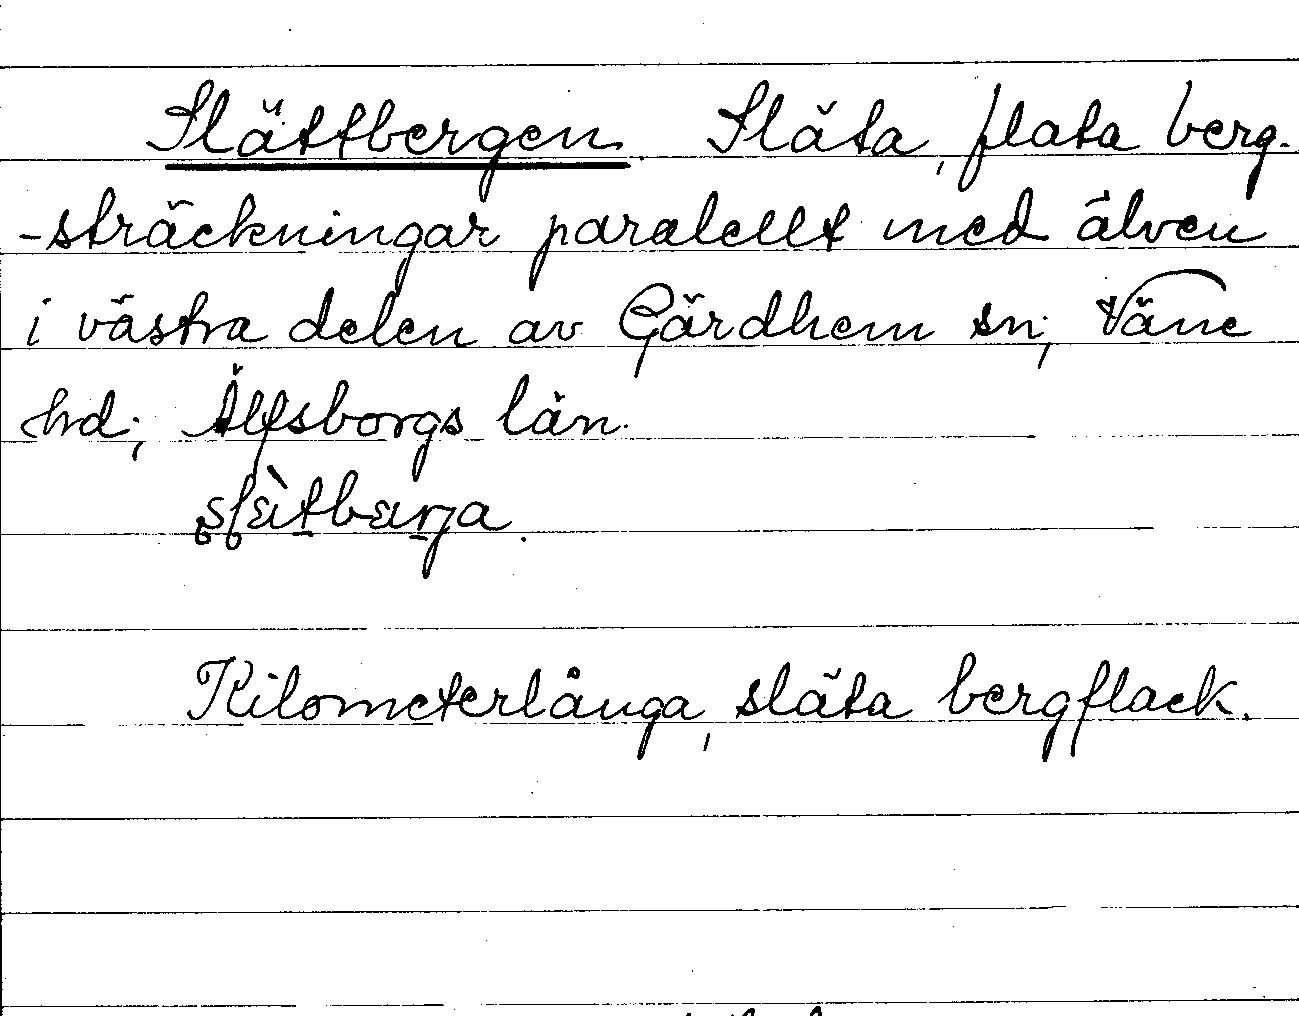 Slättbergen. Släta, flata berg-
-sträckningar paralellt med älven
i västra delen av Gärdhem sn; Väne
hd; Älfsborgs län.
Kilometerlånga, släta bergflack.